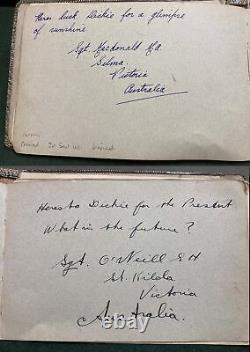 Here's luck Dickie for a glimpse
of sunshine
Sgt. Macdonald
Selma
Victoria
Australia
Here's to Dickie for the Present
What is the future ?
Sgt. O'Neill
St. Kilda
Victoria
Australia.